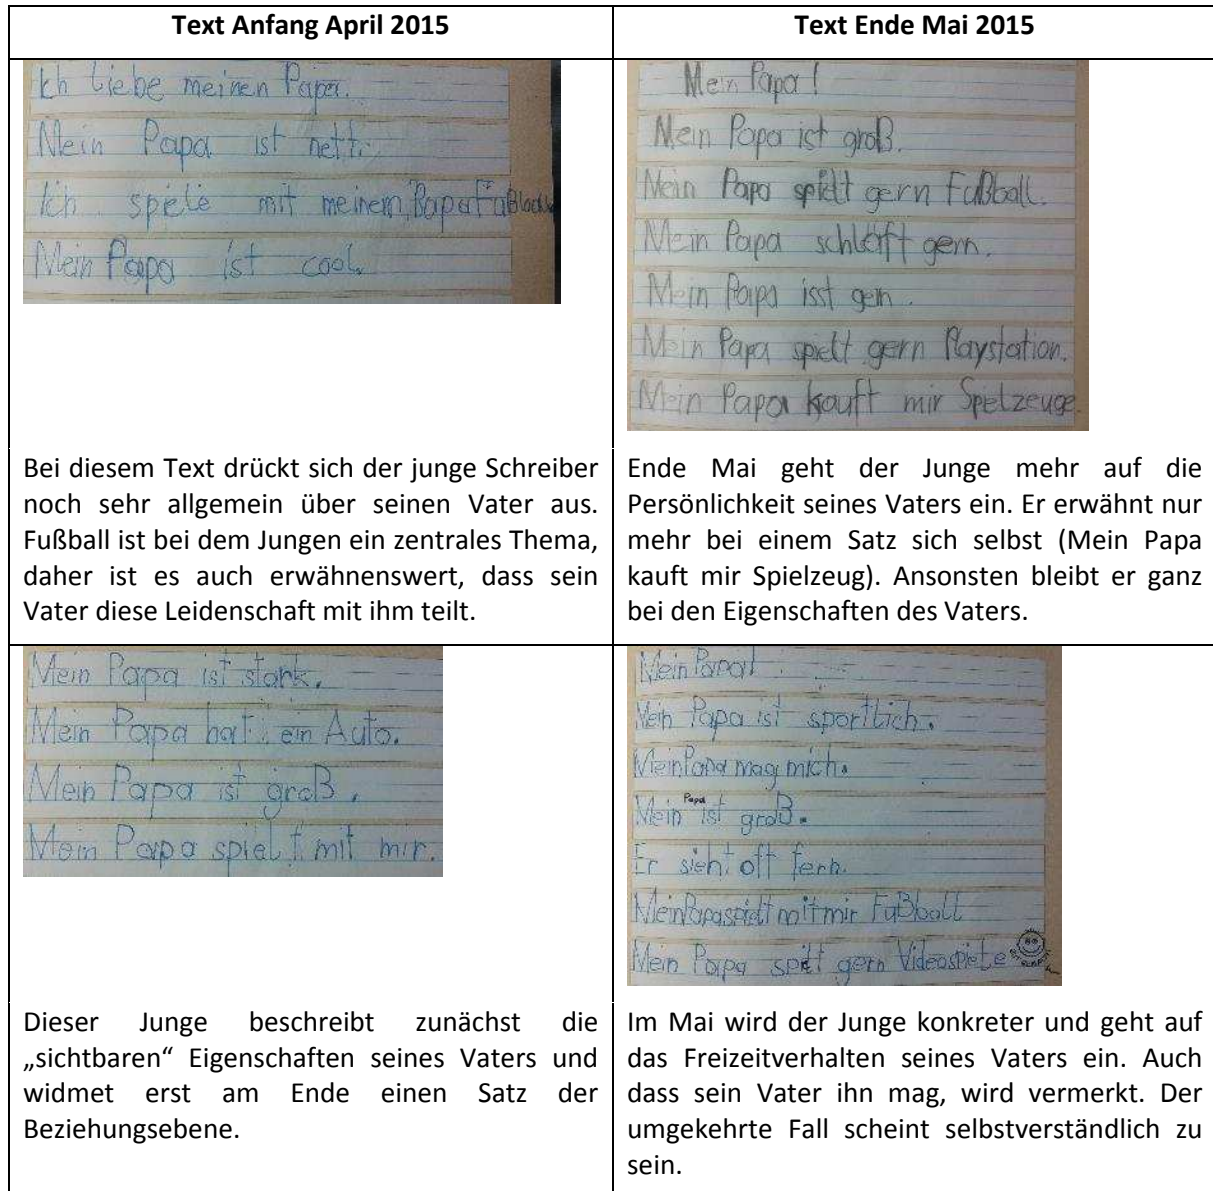 Text Anfang April 2015
Text Ende Mai 2015
Ich liebe meinen Papa.
Mein Papa ist nett.
Ich spiele mit meinem Papa Fußball
Mein Papa ist cool.
Mein Papa!
Mein Papa ist groß.
Mein Papa spielt gern Fußball.
Mein Papa schläft gern.
Mein Papa isst gern.
Mein Papa spielt gern Playstation.
Mein Papa kauft mir Spielzeuge.
Bei diesem Text drückt sich der junge Schreiber
noch sehr allgemein über seinen Vater aus.
Fußball ist bei dem Jungen ein zentrales Thema,
daher ist es auch erwähnenswert, dass sein
Vater diese Leidenschaft mit ihm teilt.
Ende Mai geht der Junge mehr auf die
Persönlichkeit seines Vaters ein. Er erwähnt nur
mehr bei einem Satz sich selbst (Mein Papa
kauft mir Spielzeug). Ansonsten bleibt er ganz
bei den Eigenschaften des Vaters.
Mein Papa ist stark.
Mein Papa hat ein Auto.
Mein Papa ist groß.
Mein Papa spielt mit mir.
Mein Papa!
Mein Papa ist sportlich.
Mein Papa mag mich.
Mein Papa ist groß.
Er sieht oft fern.
Mein Papa spielt mit mir Fußball
Mein Papa spielt gern Videospiele
Dieser Junge beschreibt zunächst die
„sichtbaren“ Eigenschaften seines Vaters und
widmet erst am Ende einen Satz der
Beziehungsebene.
Im Mai wird der Junge konkreter und geht auf
das Freizeitverhalten seines Vaters ein. Auch
dass sein Vater ihn mag, wird vermerkt. Der
umgekehrte Fall scheint selbstverständlich zu
sein.